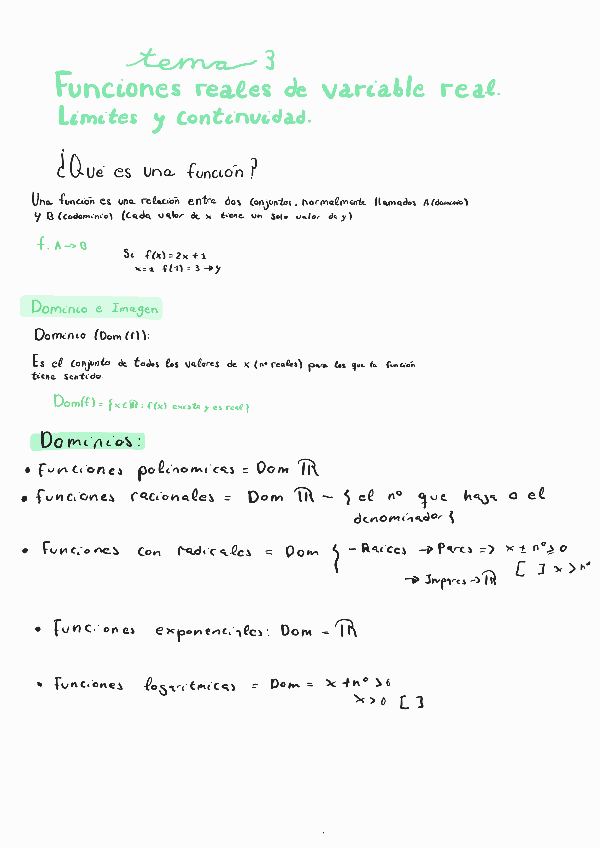 tema 3
Funciones reales de variable real.
Límites y Continuidad.
¿Qué es una función?
Una función es una relación entre dos conjuntos, normalmente llamados A (dominio)
y B (codominio) (Cada valor de x tiene un solo valor de y)
f: A → B
Si f(x) = 2x + 1
x=1 f(1) = 3 → y
Dominio e Imagen
Dominio (Dom(f)):
Es el conjunto de todos los valores de x (nº reales) para los que la función
tiene sentido
Dom(f) = {x ∈ ℝ : f(x) exista y es real}
Dominios:
• Funciones polinomicas = Dom ℝ
• Funciones racionales = Dom ℝ - { el nº que haga 0 el
denominador {
• Funciones con radicales = Dom { - Raices → Pares => x ± nº ≥ 0
[ ] x > nº
→ Impares → ℝ
• Funciones exponenciales: Dom = ℝ
• Funciones logaritmicas = Dom = x + nº > 0
x > 0 [ ]